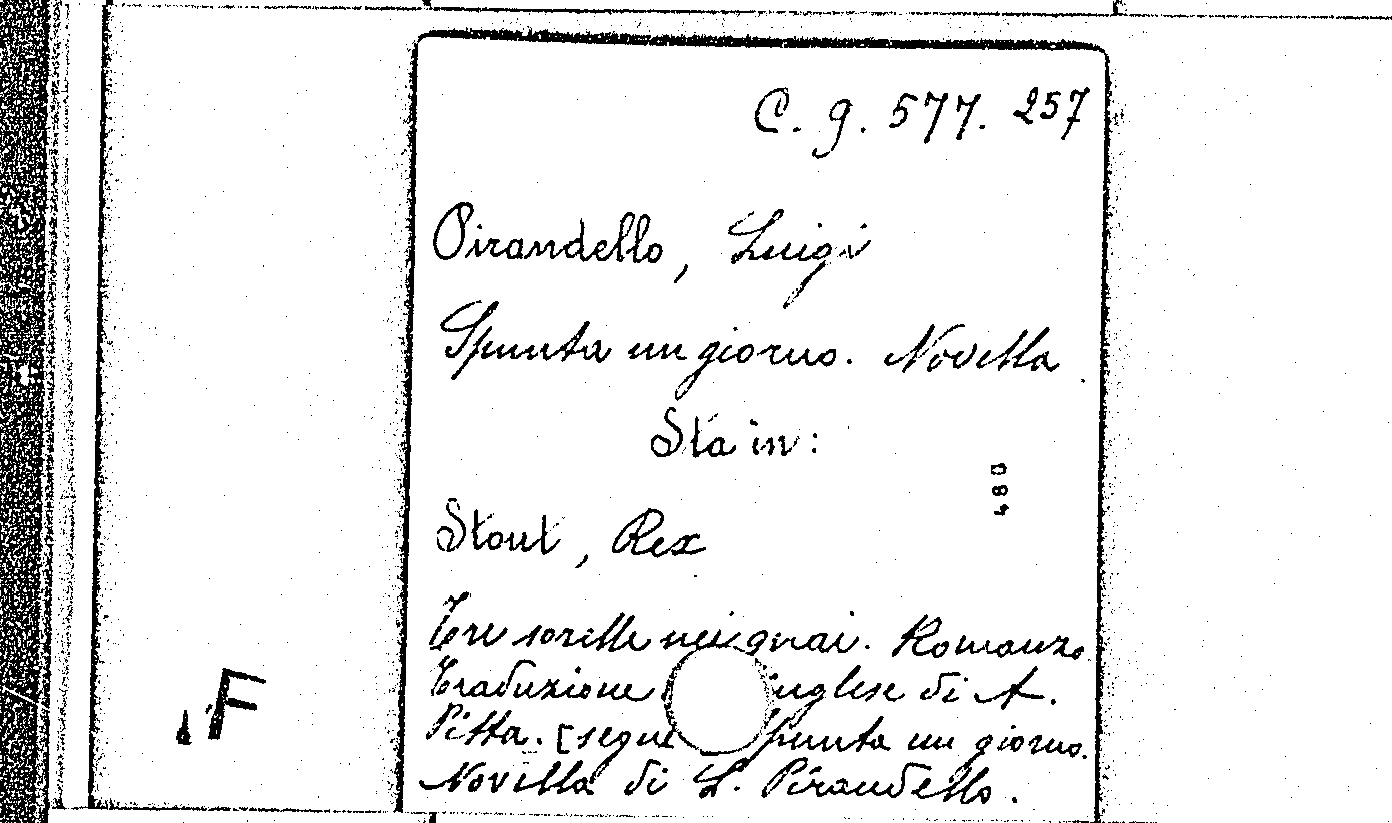 C. g. 577. 257
Pirandello, Luigi
Spunta un giorno. Novella
Sta in:
480
Stout, Rex
Tre sorelle nei guai. Romanzo
Traduzione inglese di A.
Pitta. [segue Spunta un giorno.
Novella di L. Pirandello.
F